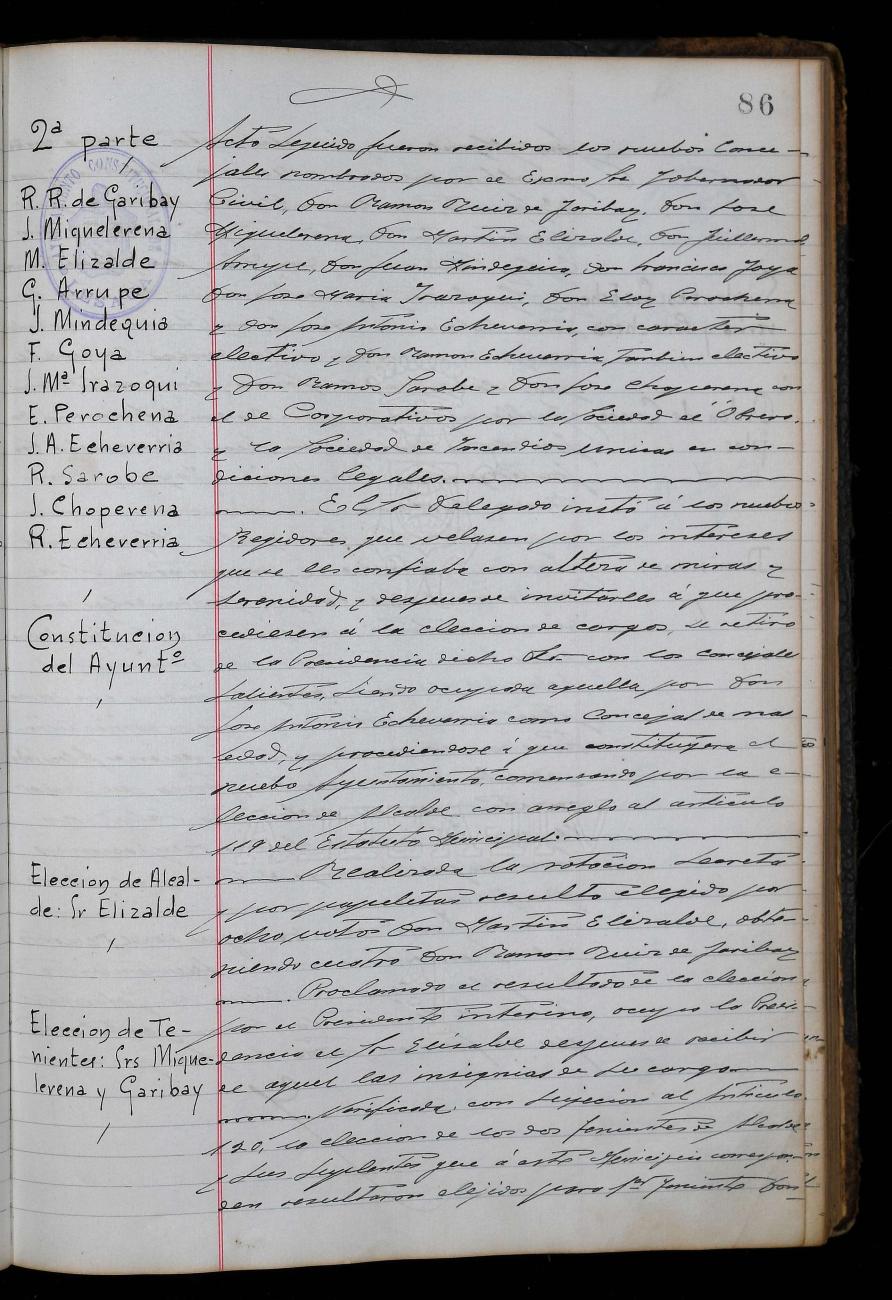 86
2ª parte
R. R. de Garibay
J. Miquelerena
M. Elizalde
G. Arrupe
J. Mindeguia
F. Goya
J. Mª Irazoqui
E. Perochena
J. A. Echeverria
R. Sarobe
J. Choperena
R. Echeverria
Constitucion
del Ayuntº
Eleccion de Alcal-
de: Sr Elizalde
Eleccion de Te-
nientes: Srs Mique-
lerena y Garibay
Acto seguido fueron recibidos los nuebos Conce-
jales nombrados por el Excmo Sr Gobernador
Civil, Don Ramon Ruiz de Garibay, Don Jose
Miquelerena, Don Martin Elizalde, Don Guillermo
Arrupe, Don Juan Mindeguia, Don Francisco Goya
Don Jose Maria Irazoqui, Don Eloy Perochena
y Don Jose Antonio Echeverria, con caracter
electivo y Don Ramon Echeverria tambien electivo
y Don Ramon Sarobe y Don Jose Choperena con
el de Corporativos por la Sociedad Obrera
y la Sociedad de Incendios unicas en con-
diciones legales.
El Sr Delegado instó á los nuebos
Regidores que velasen por los intereses
que se les confiaba con alteza de miras y
serenidad, y despues de invitarles á que pro-
cediesen á la eleccion de cargos, se retiro
de la Presidencia dicho Sr con los concejales
salientes, siendo ocupada aquella por Don
Jose Antonio Echeverria como Concejal de mas
edad, y procediendose á que constituyera el
nuebo Ayuntamiento, comenzando por la e-
leccion de Alcalde con arreglo al articulo
119 del Estatuto Municipal.
Realizada la votacion secreta
y por papeletas resulto elegido por
ocho votos Don Martin Elizalde, obte-
niendo cuatro Don Ramon Ruiz de Garibay
Proclamado el resultado de la eleccion
por el Presidente interino, ocupo la Presi-
dencia el Sr Elizalde despues de recibir
de aquel las insignias de su cargo
Verificada, con sujecion al Articulo
120, la eleccion de los dos Tenientes de Alcalde
y sus suplentes que á este Municipio correspon-
den resultaron elejidos para 1er Teniente Don